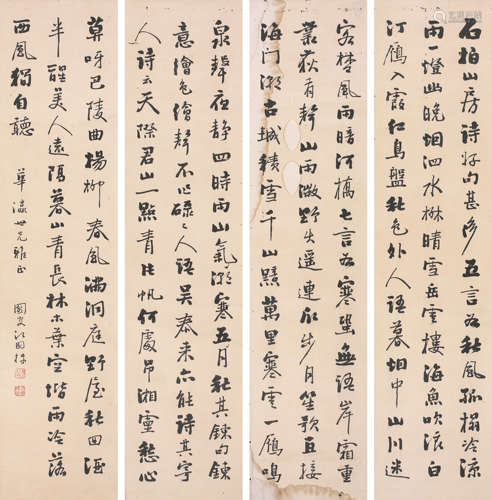 石柏山房詩好句甚多五言如秋風孤榻冷涼
雨一燈幽晚烟泗水晴雪岳雲樓海魚吹浪白
汀鴈入霞紅鳥盤秋色外人語暮烟中山川迷
客楚風雨暗河橋七言如寒蛩無語岸霜重
叢荻有聲山雨微野火遥連步月笙歌直接
海門潮古城積雪千山驛萬里寒雲一鴈鳴
泉聲夜静四時雨山氣潮寒五月秋其鍊句鍊
意繪色繪聲不必碌碌人語吴泰来亦能詩其寄
人詩云天際君山一點青片帆何處弔湘靈愁心
莫巴陵曲楊柳春風滿洞庭野屋秋回酒
半醒美人遠隔暮山青長林木葉空階雨冷落
西風獨自聽
華瀛世兄雅正
江國棟